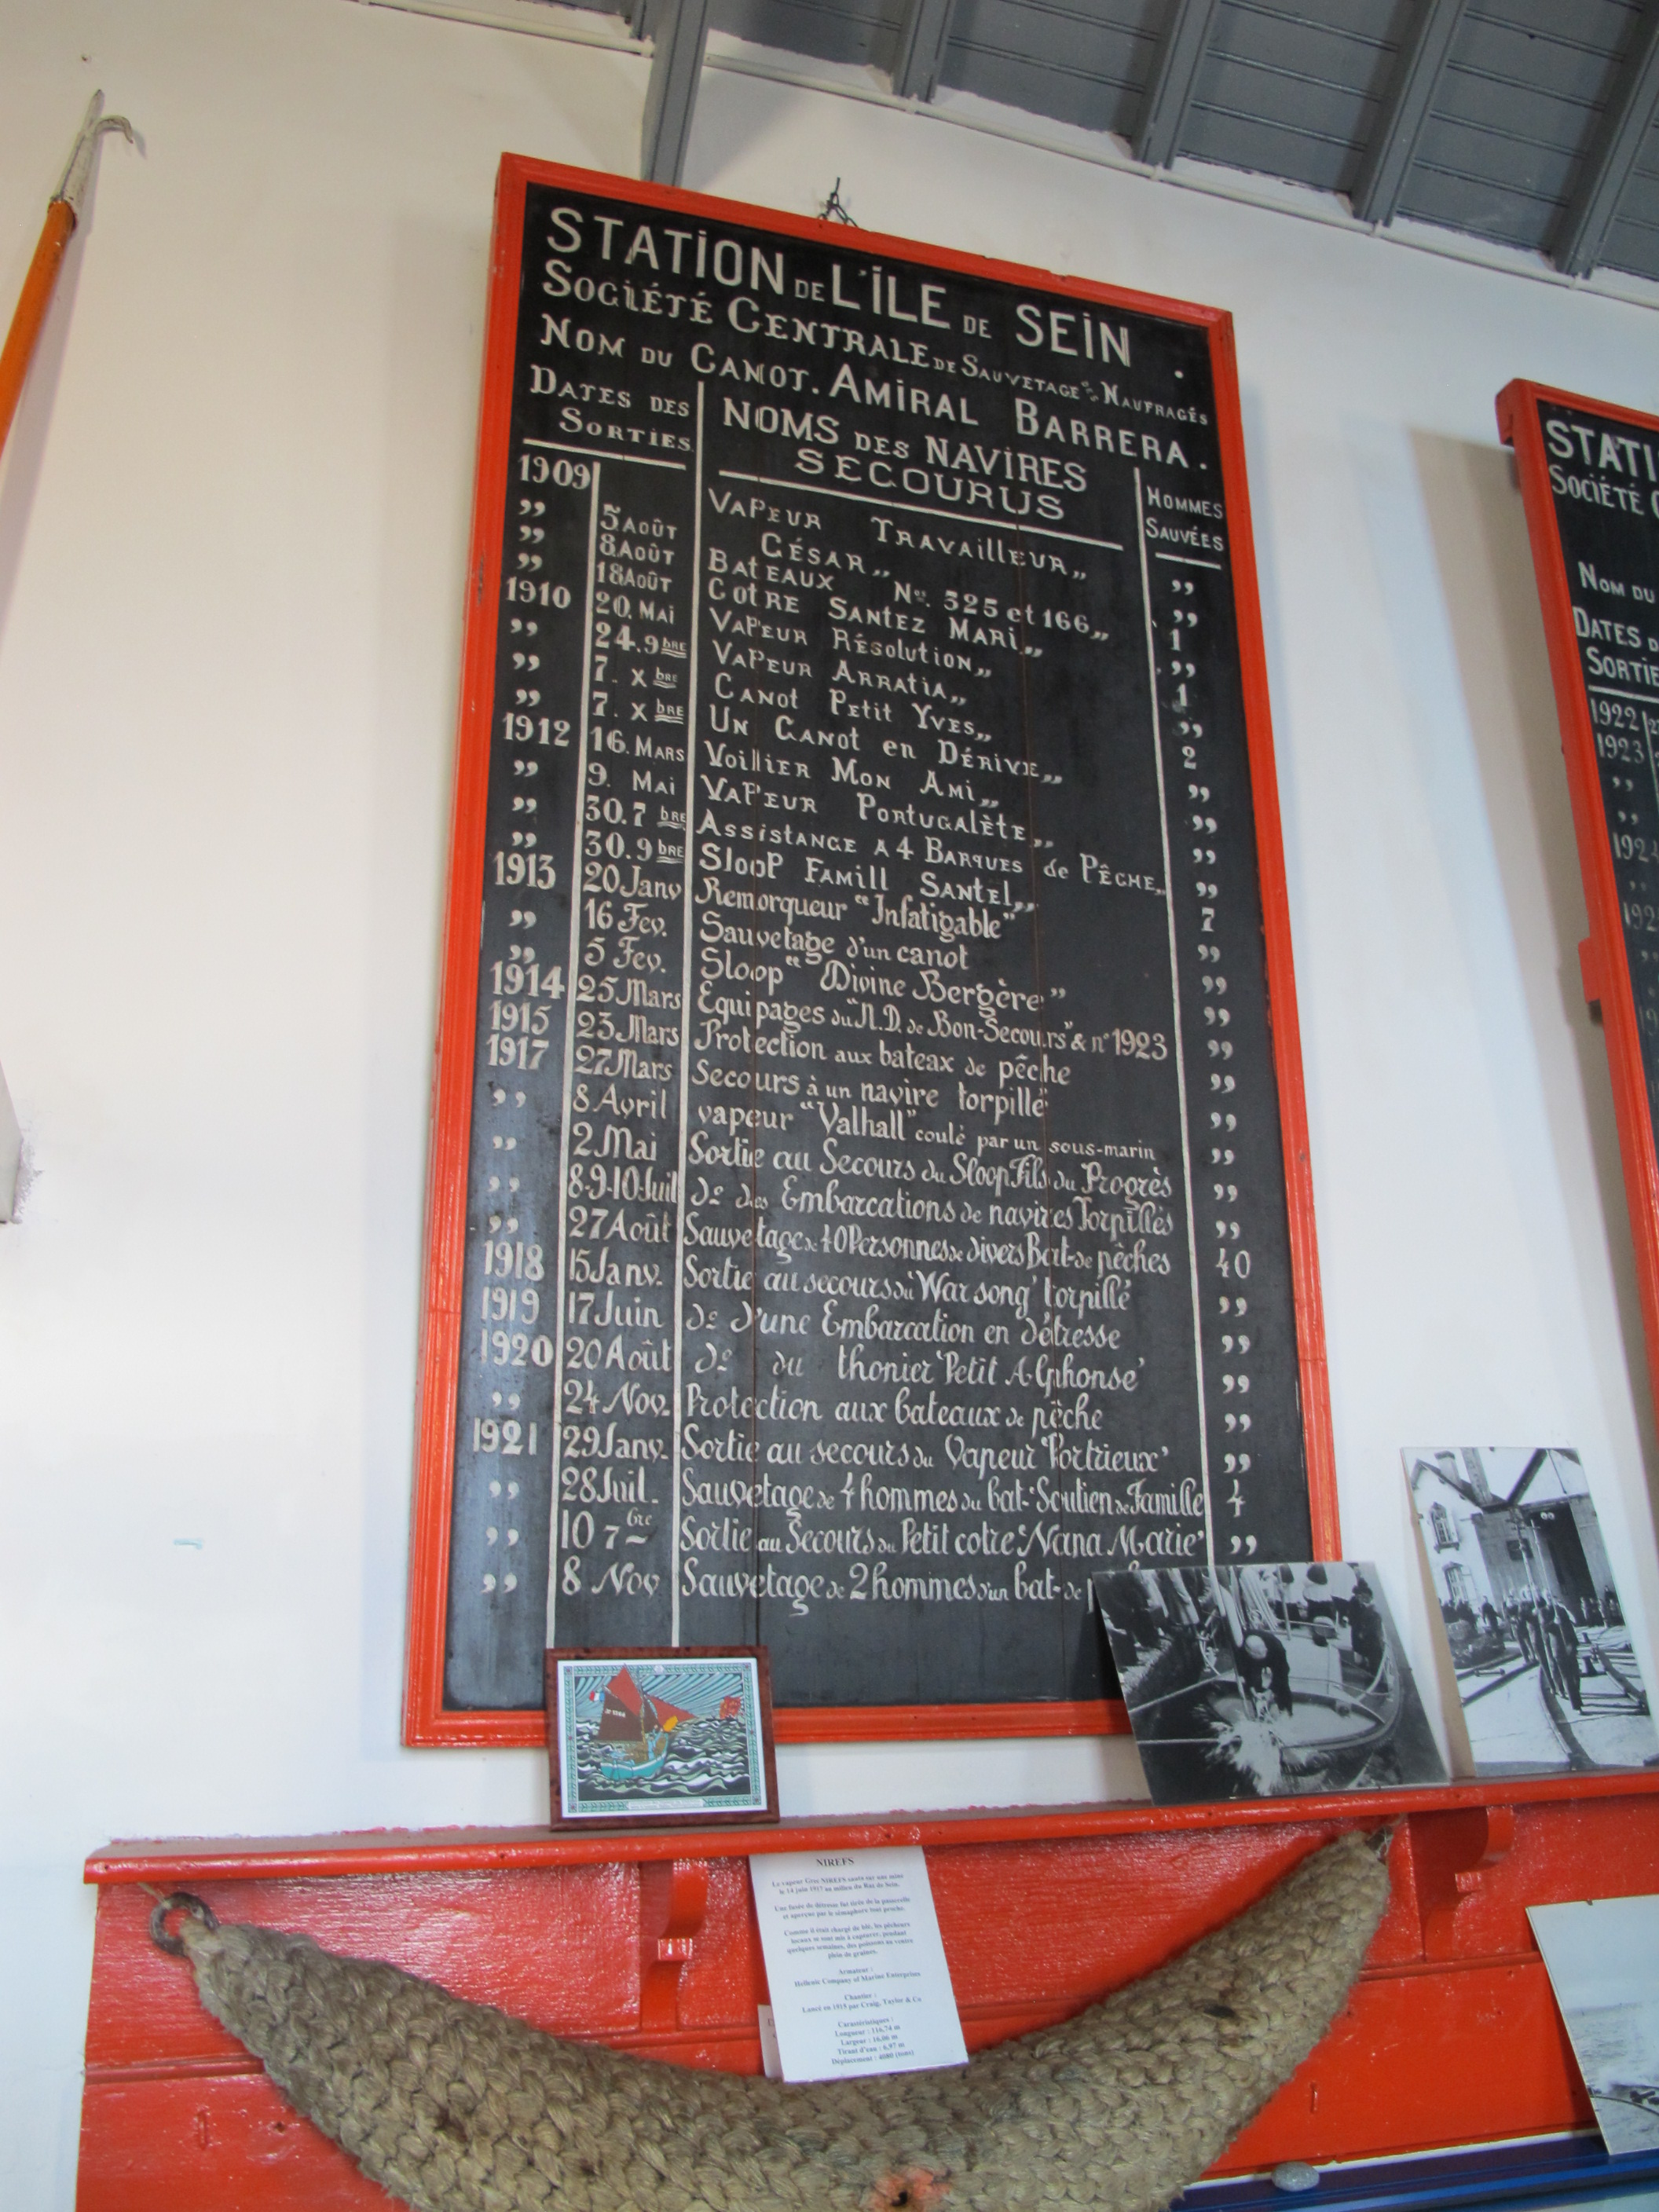 STATION DE L'ÎLE DE SEIN.
SOCIÉTÉ CENTRALE DE SAUVETAGE DES NAUFRAGÉS
NOM DU CANOT. AMIRAL BARRERA.
DATES DES SORTIES
NOMS DES NAVIRES SECOURUS
HOMMES SAUVÉES
1909 VAPEUR TRAVAILLEUR,, ,,
,, 5 AOÛT CÉSAR,, ,,
,, 8 AOÛT BATEAUX Nos. 325 et 166,, 1
,, 18 AOÛT COTRE SANTEZ MARI,, ,,
1910 20. MAI VAPEUR RÉSOLUTION,, 1
,, 24.9bre VAPEUR ARRATIA,, ,,
,, 7. Xbre CANOT PETIT YVES,, 2
,, 7. Xbre UN CANOT EN DÉRIVE,, ,,
1912 16. MARS VOILLIER MON AMI,, ,,
,, 9. MAI VAPEUR PORTUGALÈTE,, ,,
,, 30.7bre ASSISTANCE A 4 BARQUES de PÊCHE,, ,,
,, 30.9bre SLOOP FAMILL SANTEL,, 7
1913 20 Janv Remorqueur "Infatigable" ,,
,, 16 Fev. Sauvetage d'un canot ,,
,, 5 Fev. Sloop "Divine Bergère" ,,
1914 25 Mars Equipages du "N.D. de Bon-Secours" & n° 1923 ,,
1915 23 Mars Protection aux bateax de pêche ,,
1917 27 Mars Secours à un navire torpillé ,,
,, 8 Avril vapeur "Valhall" coulé par un sous-marin ,,
,, 2 Mai Sortie au Secours du Sloop Fils du Progrès ,,
,, 8-9-10 Juil do des Embarcations de navires Torpillés ,,
,, 27 Août Sauvetage de 40 Personnes de divers Bat- de pêches 40
1918 15 Janv. Sortie au secours du 'War song' torpillé ,,
1919 17 Juin do d'une Embarcation en détresse ,,
1920 20 Août do du thonier 'Petit Alphonse' ,,
,, 24 Nov. Protection aux bateaux de pêche ,,
1921 29 Janv. Sortie au secours du Vapeur 'Portrieux' ,,
,, 28 Juil. Sauvetage de 4 hommes du bat- 'Soutien de Famille 4
,, 10 7bre Sortie au Secours du Petit cotre 'Nana Marie' ,,
,, 8 Nov Sauvetage de 2 hommes d'un bat- de
STATI
SOCIÉTÉ
NOM DU
DATES D
SORTIE
1922
1923
NIREFS
Le vapeur Grec NIREFS saute sur une mine
le 14 juin 1917 au milieu du Raz de Sein.
Une fusée de détresse fut tirée de la passerelle
et aperçue par le sémaphore tout proche.
Comme il était chargé de blé, les pêcheurs
locaux se sont mis à capturer, pendant
quelques semaines, des poissons au ventre
plein de graines.
Armateur :
Hellenic Company of Marine Enterprises
Chantier :
Lancé en 1915 par Craig, Taylor & Co
Caractéristiques :
Longueur : 116,74 m
Largeur : 16,06 m
Tirant d'eau : 6,97 m
Déplacement : 4080 (tons)